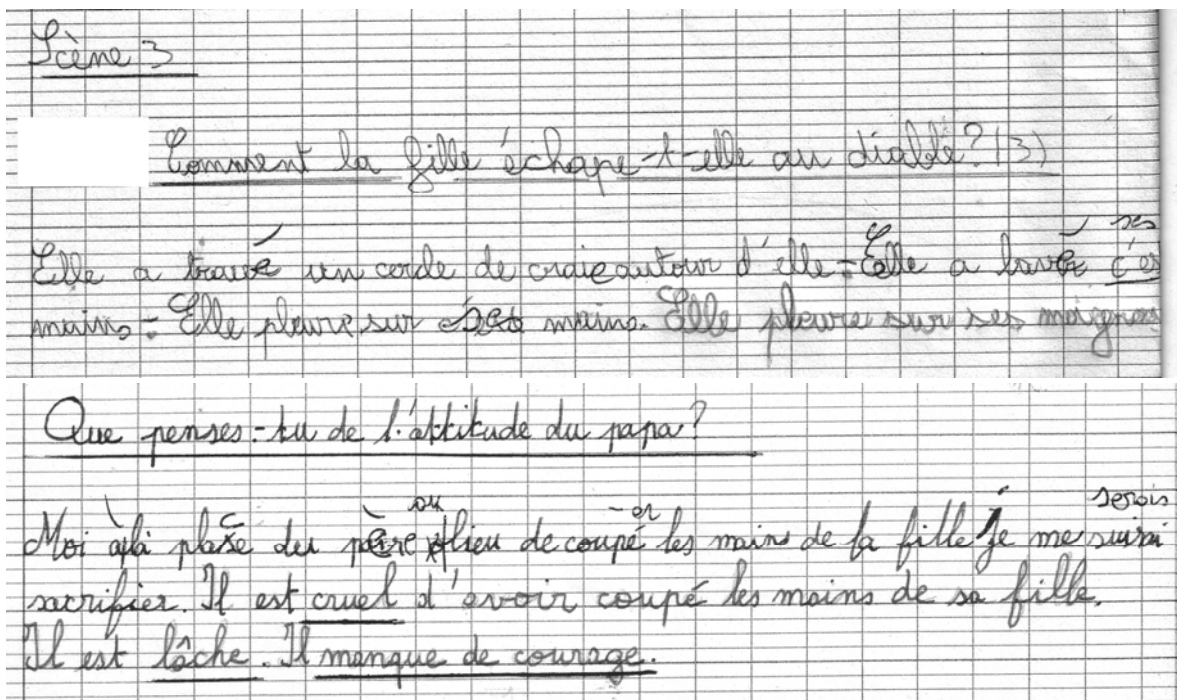 Scène 3
Comment la fille échape-t-elle au diable? (3)
ses
Elle a travé un cercle de craie autour d'elle. Elle a lavé c'es
mains. Elle pleure sur ses mains. Elle pleure sur ses moignons
Que penses-tu de l'attitude du papa?
au er serais
Moi à la place du père lieu de coupé les mains de la fille je me suirai
sacrifier. Il est cruel d'avoir coupé les mains de sa fille.
Il est lâche. Il manque de courage.